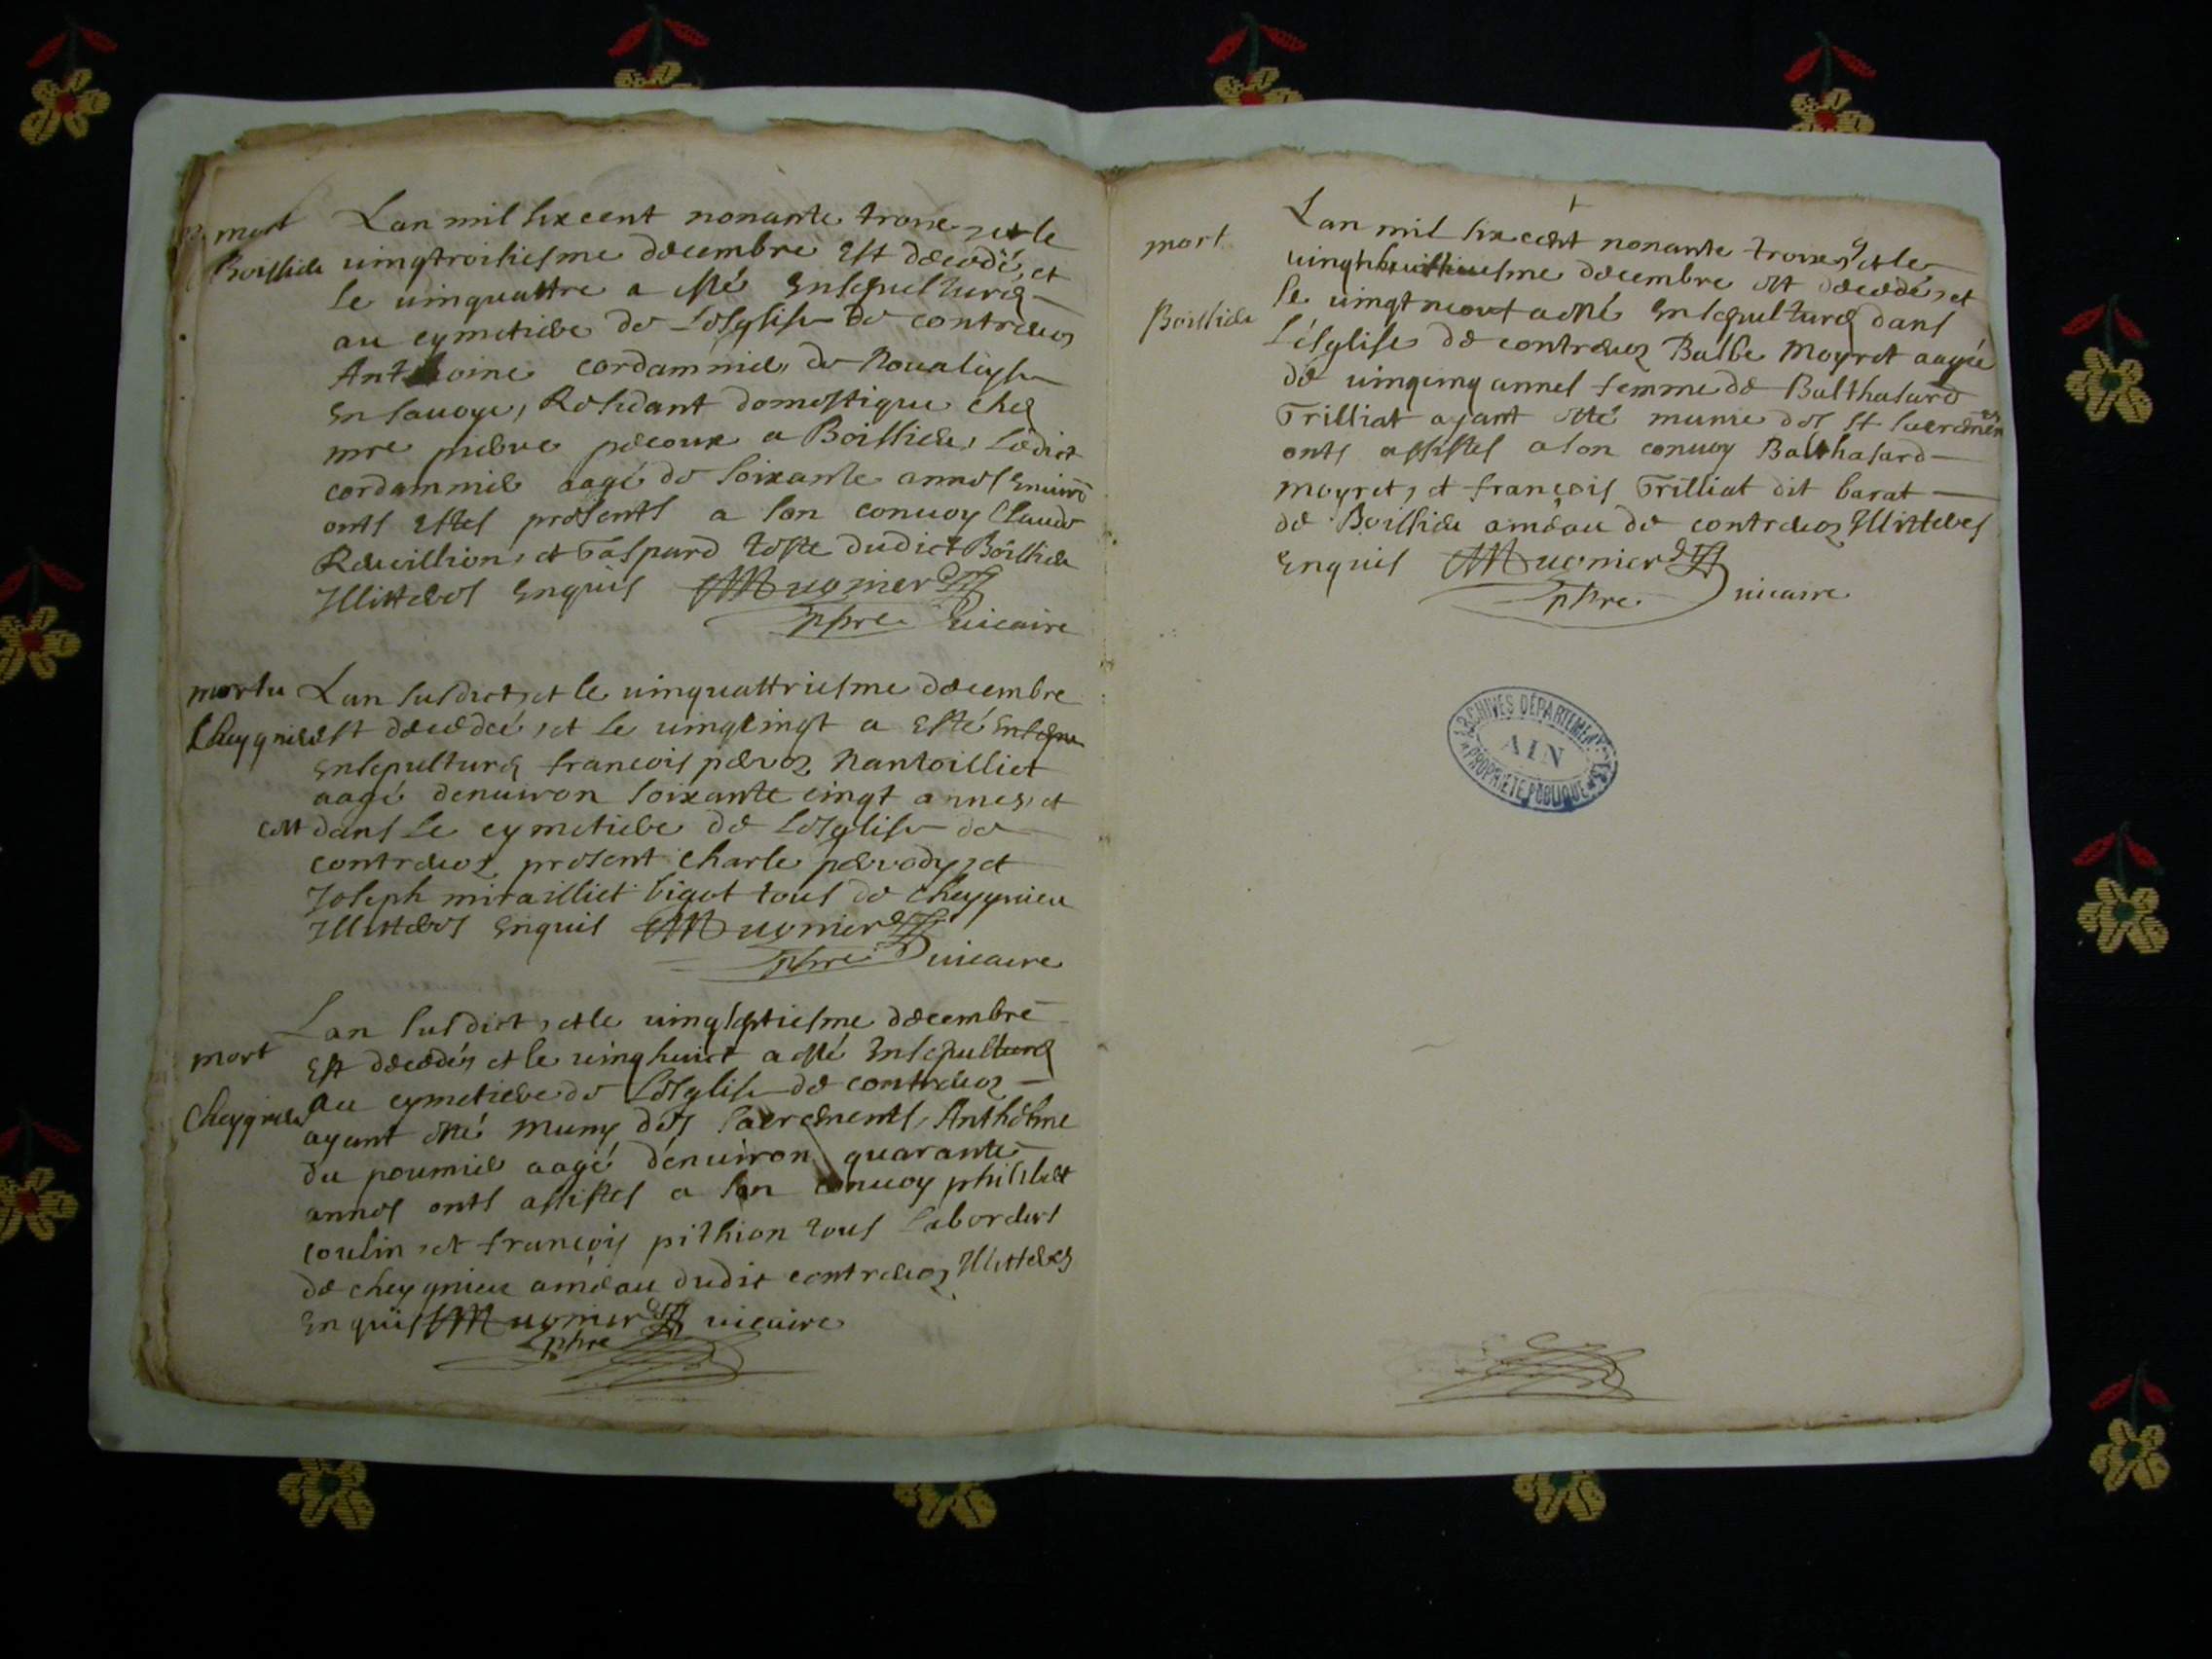 mort
Boissieu
Lan mil six cent nonante troys et le
uingtroisiesme decembre est decedé, et
le uinquattre a esté ensepulturé
au cymetiere de Lesglise de contreuoz
Anthoine cordammier de Noualeyse
en sauoye, Residant domestique chez
mre pierre pecoux a Boissieu, Ledict
cordammier aagé de soixante annes enuirō
onts estes presents a son conuoy Claude
Reueillion, et Gaspard teste dudict Boissieu
Illitteres enquis Mugnier
pbre uicaire
mortu
Cheygnieu
Lan susdict, et le uinquattriesme decembre
est decedé, et le uingcingt a esté
ensepulturé francois peroz Nantoilliet
aagé denuiron soixante cingt annes, et
cest dans Le cymetiere de Lesglise de
contreuoz present Charle peroz, et
Joseph mirailliet bigot tous de Cheygnieu
Illitteres enquis Mugnier
pbre uicaire
mort
Cheygnieu
Lan susdict, et le uingseptiesme decembre
est decedé, et le uinghuict a esté ensepulturé
au cymetiere de Lesglise de contreuoz
ayant esté muny des sacrements, Anthelme
du poumier aagé denuiron quarante
annes onts assistes a son conuoy philibert
coulin, et francois pithion tous Laboreurs
de cheygnieu améau dudit contreuoz Illitteres
enquis Mugnier uicaire
pbre
mort
Boissieu
Lan mil six cent nonante troys et le
uinghuictiesme decembre est decedé, et
le uingtneouf a esté ensepulturé dans
L'ésglise de contreuoz Balbe Moyret aagée
de uingcinq annes femme de Balthasard
Trilliat ayant esté munie des st sacremens
onts assistes a son conuoy Balthasard
moyret, et françois Trilliat dit barat
de Boissieu améau de contreuoz Illitteres
enquis Mugnier
pbre uicaire
ARCHIVES DÉPARTEMENTALES
AIN
PROPRIÉTÉ PUBLIQUE